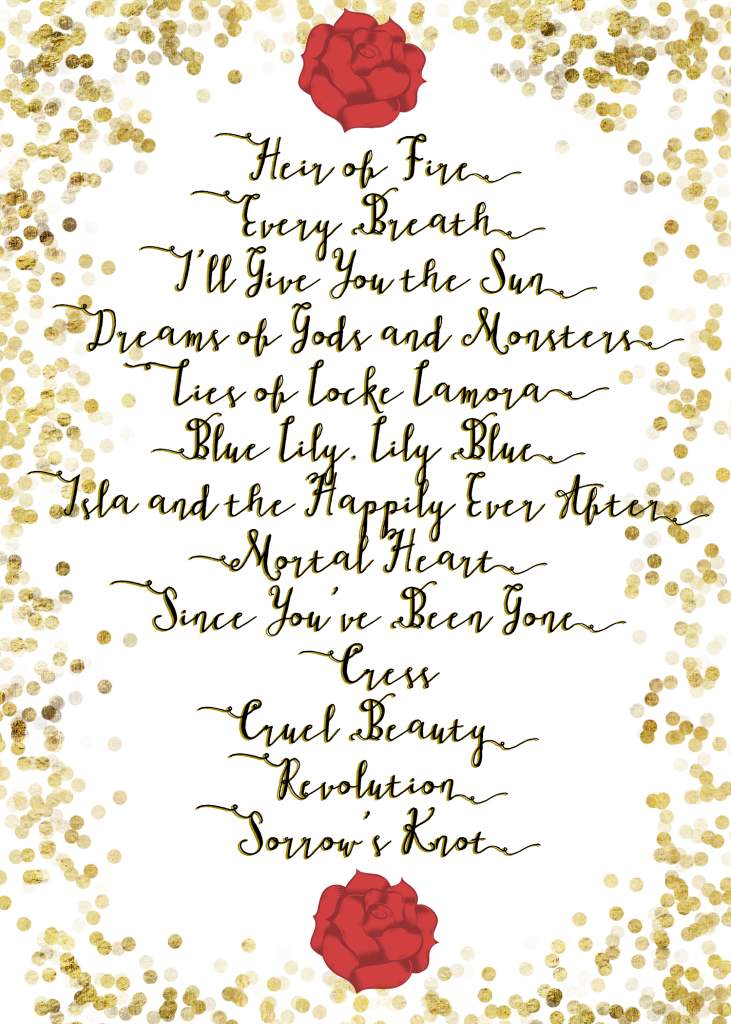 Heir of Fire
Every Breath
I'll Give You the Sun
Dreams of Gods and Monsters
Lies of Locke Lamora
Blue Lily, Lily Blue
Isla and the Happily Ever After
Mortal Heart
Since You've Been Gone
Cress
Cruel Beauty
Revolution
Sorrow's Knot